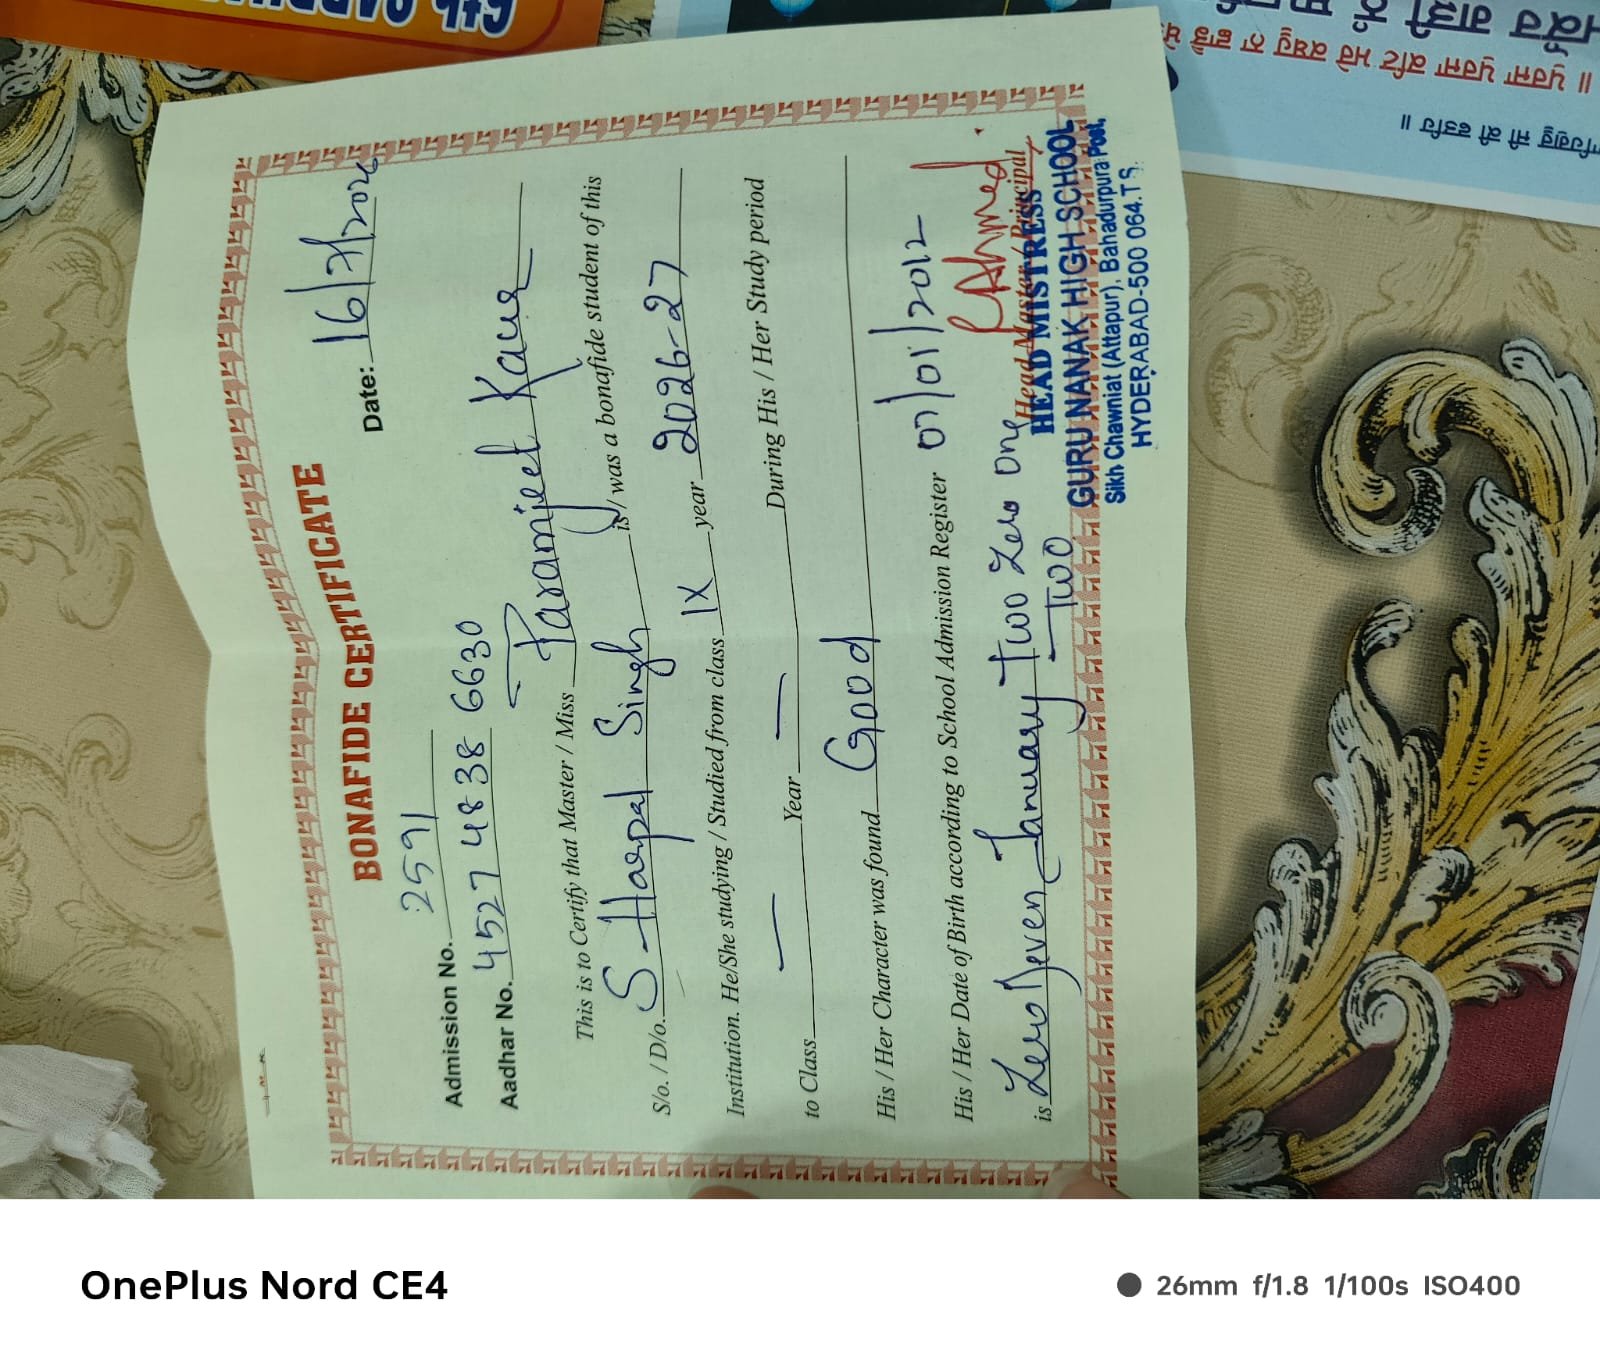 BONAFIDE CERTIFICATE
Date: 16/7/2026
Admission No. 2591
Aadhar No. 4527 4838 6630
This is to Certify that Master / Miss Paramjeet Kaur
S/o. / D/o. S. Harpal Singh is / was a bonafide student of this
Institution. He/She studying / Studied from class IX year 2026-27
to Class — Year — During His / Her Study period
His / Her Character was found Good
His / Her Date of Birth according to School Admission Register 07/01/2012
is Zero Seven January Two Zero One
Two
Head Master / Principal
HEAD MISTRESS
GURU NANAK HIGH SCHOOL
Sikh Chawniat (Attapur), Bahadurpura Post,
HYDERABAD-500 064.T.S.
OnePlus Nord CE4
26mm f/1.8 1/100s ISO400